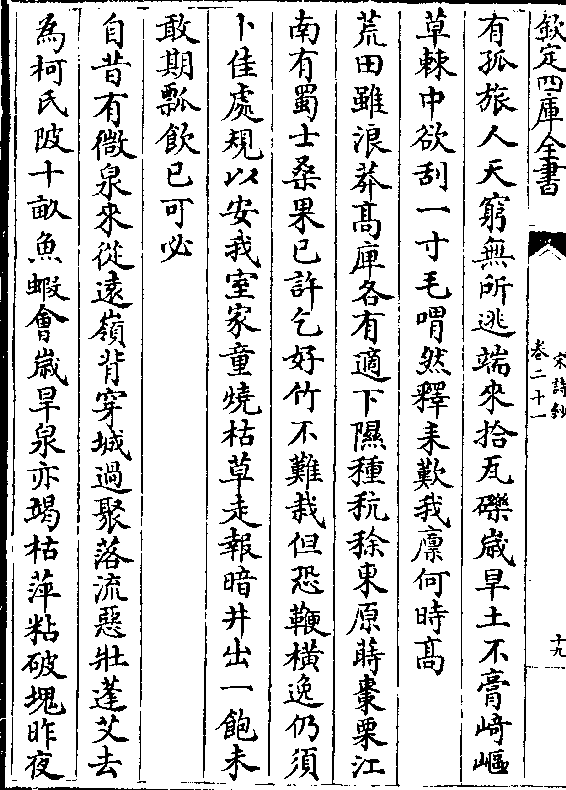 欽定四庫全書
宋詩鈔
卷二十一
十九
有孤旅人天窮無所逃端來拾瓦礫歲旱土不膏崎嶇
草棘中欲刮一寸毛喟然釋耒歎我廪何時髙
荒田雖浪莽髙庳各有適下隰種秔稌東原蒔棗栗江
南有蜀士桑果已許乞好竹不難栽但恐鞭橫逸仍須
卜佳處規以安我室家童燒枯草走報暗井出一飽未
敢期瓢飲已可必
自昔有微泉來從遠嶺背穿城過聚落流惡壯蓬艾去
為柯氏陂十畝魚蝦會歲旱泉亦竭枯萍粘破塊昨夜